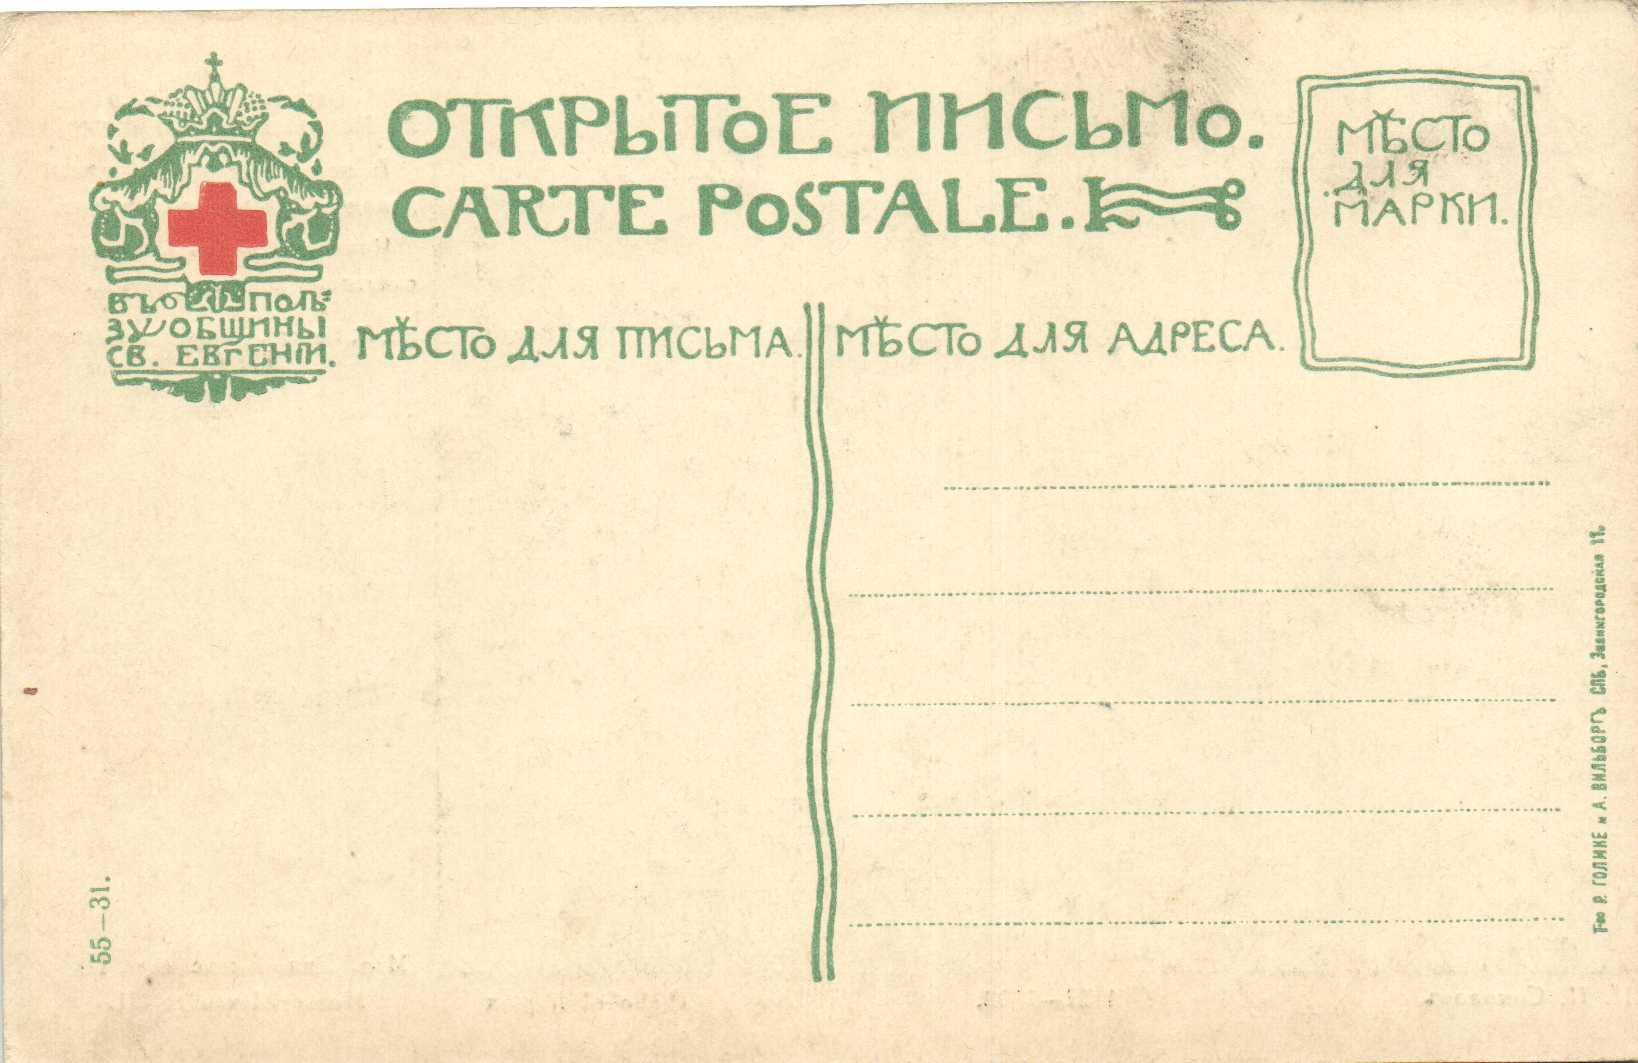 ОТКРЫТОЕ ПИСЬМО.
CARTE POSTALE.
МѢСТО
ДЛЯ
МАРКИ.
ВЪ ПОЛЬ=
ЗУ ОБЩИНЫ
СВ. ЕВГЕНІИ.
МѢСТО ДЛЯ ПИСЬМА.
МѢСТО ДЛЯ АДРЕСА.
55—31.
Т-во Р. ГОЛИКЕ и А. ВИЛЬБОРГЪ СПБ, Звенигородская 11.